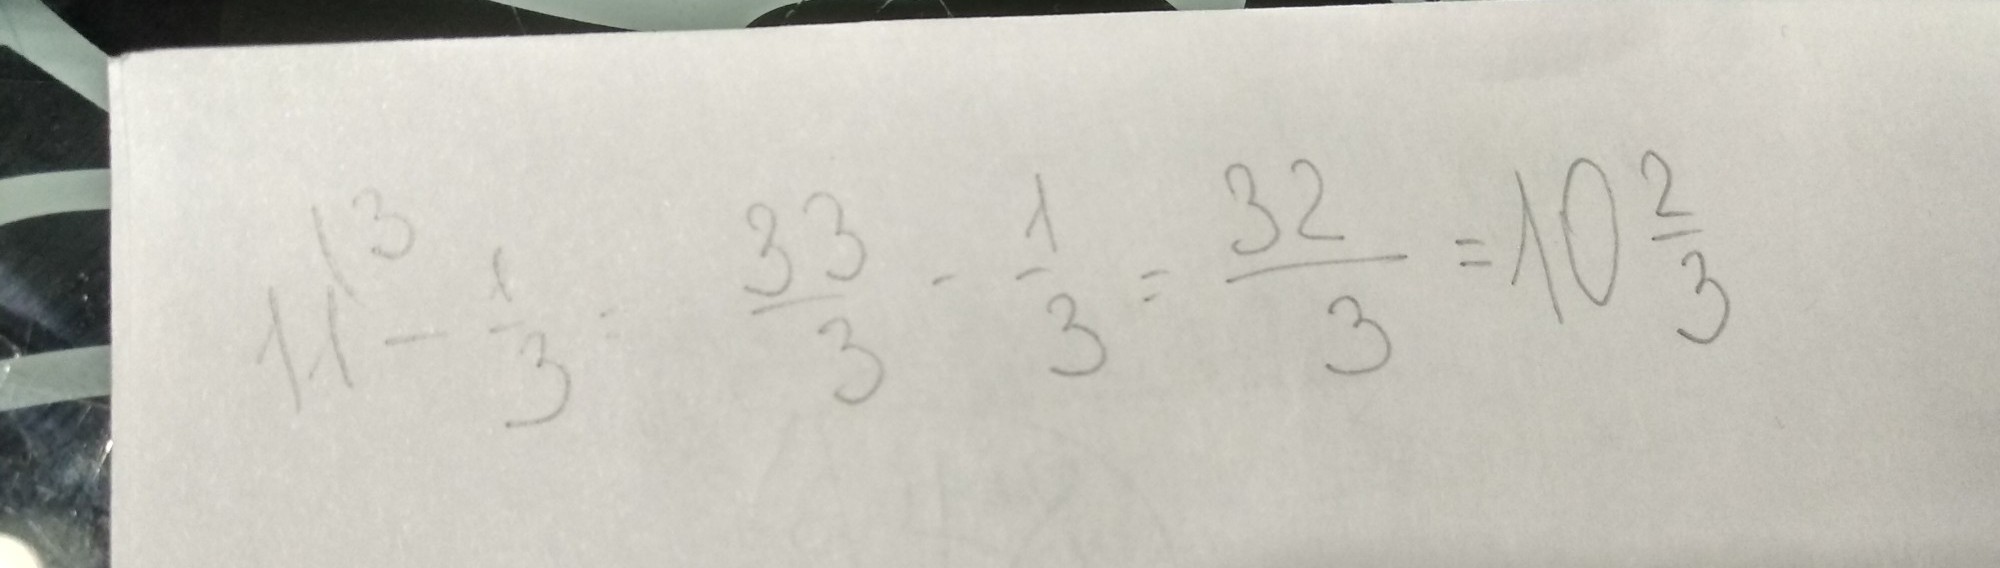 11\3 - 1/3 = 33/3 - 1/3 = 32/3 = 10 2/3